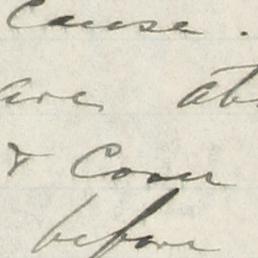 cause.
are ab
& Coon
before